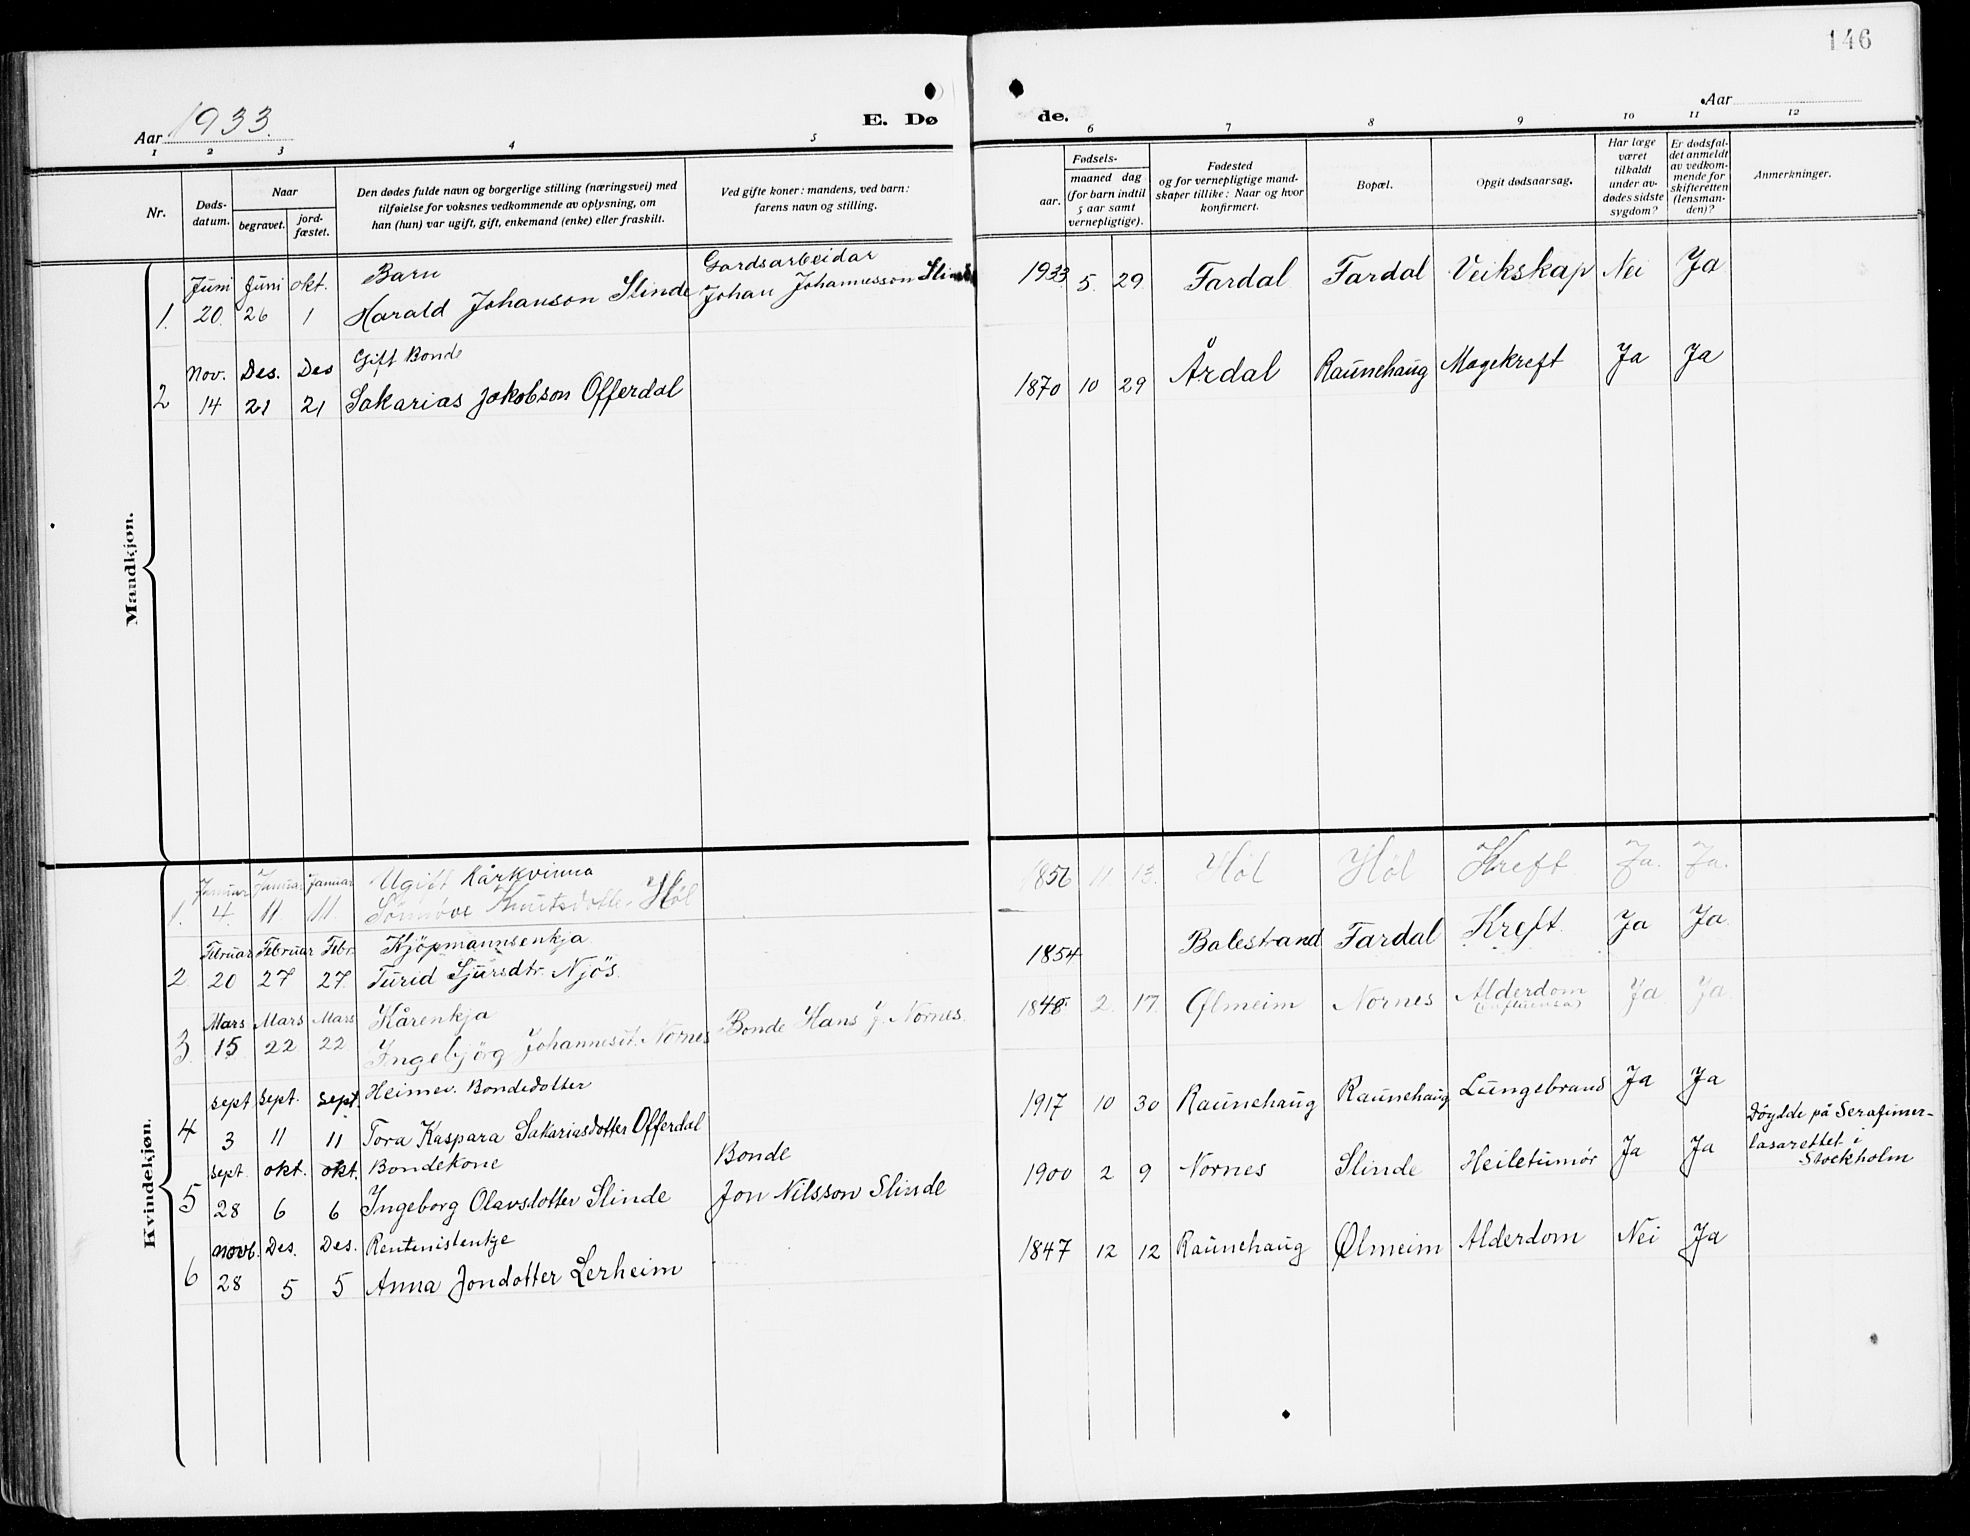 146
Aar 1933.
E. Dø
de.
Aar
1 2 3 4 5 6 7 8 9 10 11 12
Nr.
Døds-
datum.
Naar
begravet.
jord-
fæstet.
Den dødes fulde navn og borgerlige stilling (næringsvei) med
tilføielse for voksnes vedkommende av oplysning, om
han (hun) var ugift, gift, enkemand (enke) eller fraskilt.
Ved gifte koner: mandens, ved barn:
farens navn og stilling.
Fødsels-
aar.
maaned dag
(for barn indtil
5 aar samt
vernepligtige).
Fødested
og for vernepligtige mand-
skaper tillike: Naar og hvor
konfirmert.
Bopæl.
Opgit dødsaarsag.
Har læge
været
tilkaldt
under av-
dødes sidste
sygdom?
Er dødsfal-
det anmeldt
av vedkom-
mende for
skifteretten
(lensman-
den)?
Anmerkninger.
Mandkjøn.
Juni Juni okt. Barn Gardsarbeidar
1. 20. 26 1 Harald Johanson Slinde Johan Johannesson Slinde 1933 5. 29. Fardal Fardal Veikskap Nei Ja
Nov. Des. Des Gift Bonde
2 14 21 21 Sakarias Jakobson Offerdal 1870 10 29 Årdal Raunehaug Magekreft Ja Ja
Kvindekjøn.
Januar Januar Januar Ugift Kårkvinna
1. 4. 11. 11. Synnøve Knutsdotter Høl 1856 11 13. Høl Høl Kreft Ja. Ja.
Februar Februar Febr. Kjöpmannsenkja
2 20 27 27 Turid Sjursdtr. Njøs. 1854 Balestrand Fardal Kreft. Ja Ja
Mars Mars Mars Kårenkja
3. 15 22 22 Ingebjörg Johannesdt. Nornes Bonde Hans J. Nornes. 1848 2. 17. Ølmeim Nornes Alderdom
(influensa) Ja Ja
sept sept. sept. Heimev. Bondedotter
4 3 11 11 Tora Kaspara Sakariasdotter Offerdal 1917 10 30 Raunehaug Raunehaug Lungebrand Ja Ja
sept okt. okt. Bondekone Bonde
5 28 6 6 Ingeborg Olavsdotter Slinde Jon Nilsson Slinde 1900 2 9 Nornes Slinde Heiletumør Ja Ja
Døydde på Serafimer-
lasarettet i
Stockholm
Novb. Des. Des. Rentenistenkje
6 28 5 5 Anna Jondotter Lerheim 1847 12 12 Raunehaug Ølmeim Alderdom Nei Ja